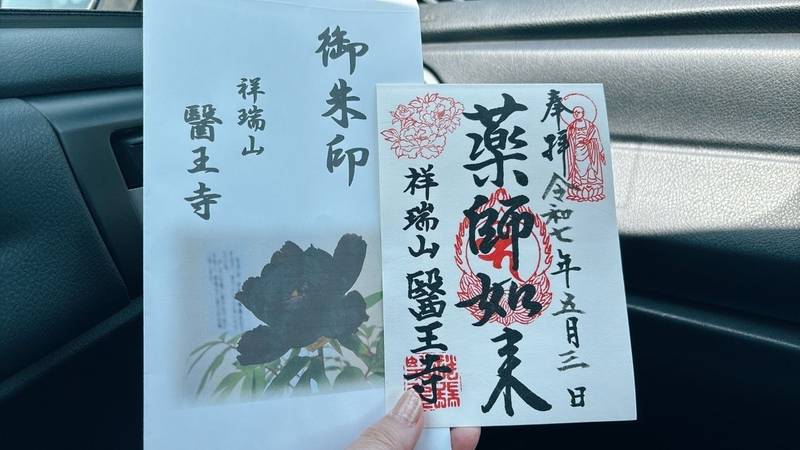 御朱印
祥瑞山
醫王寺
奉拝 令和七年五月三日
薬師如来
祥瑞山 醫王寺